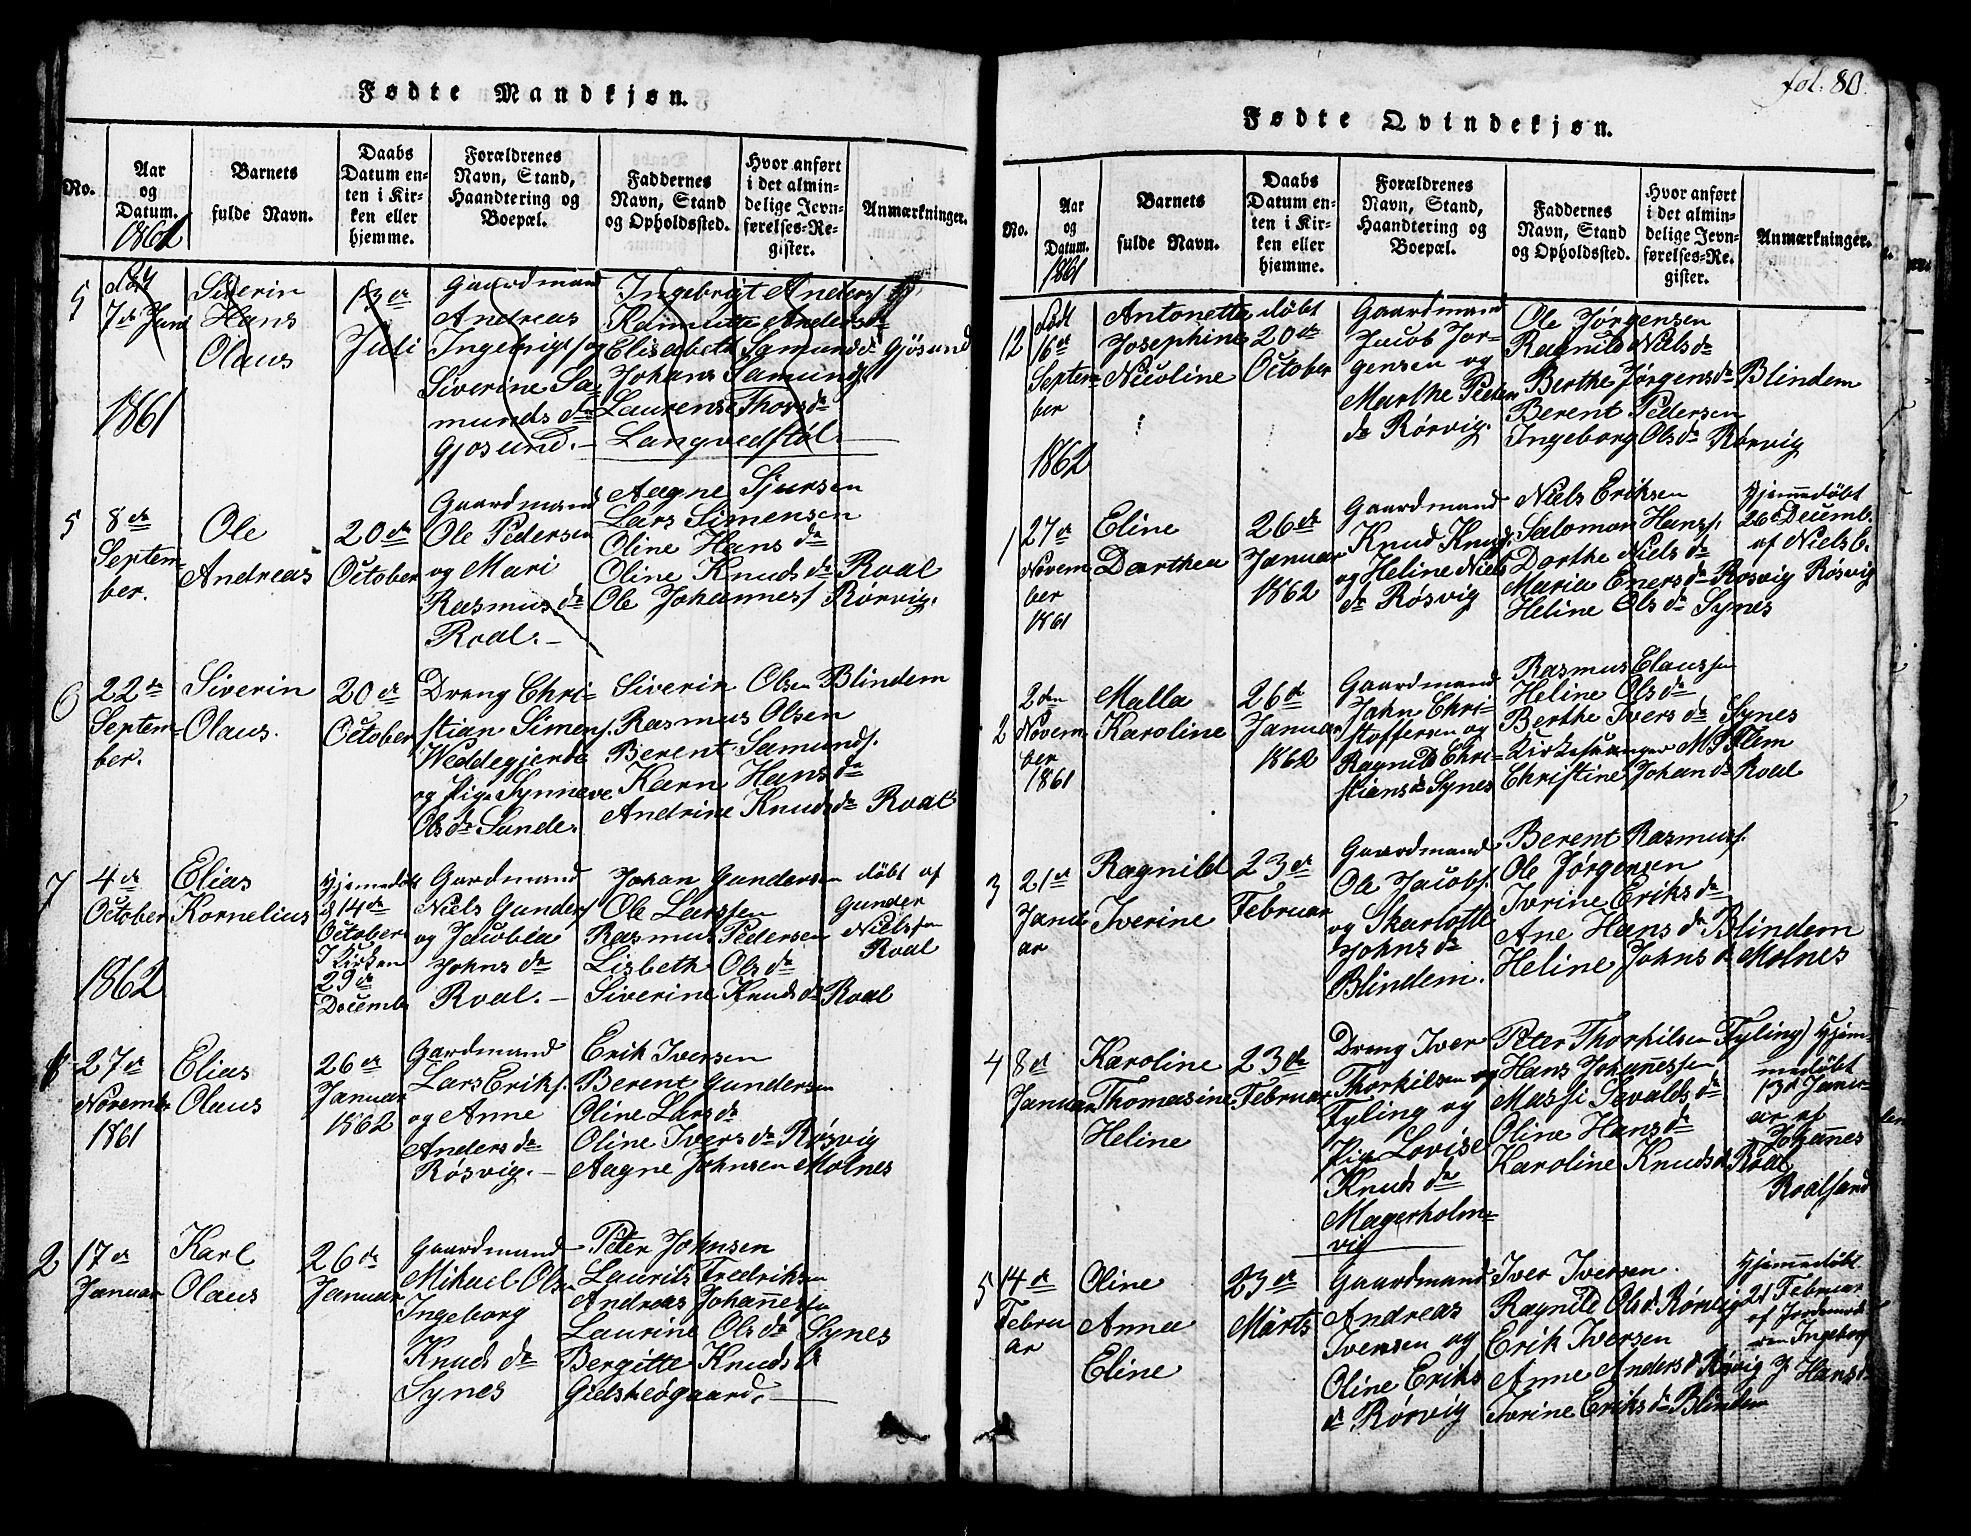 Fødte Mandkjøn.
No.
Aar
og
Datum.
1861
Barnets
fulde Navn.
Daabs
Datum en-
ten i Kir-
ken eller
hjemme.
Forældrenes
Navn, Stand,
Haandtering og
Boepæl.
Faddernes
Navn, Stand
og Opholdssted.
Hvor anført
i det almin-
delige Jevn-
førelses-Re-
gister.
Anmærkninger.
5
7de Juni
1861
Siverin
Hans
Olaus
13de
Juli
Gaardmand
Andreas
Ingebrigts og
Siverine Sa-
munds dr
Gjøsund.
Ingebrigt Anders
Elisabeth Samunds dr Gjøsund
Johans Samunds
Laurense Thors dr
Langvedstøl.
5
8de
Septem-
ber.
Ole
Andreas
20de
October
Gaardmand
Ole Pedersen
og Mari
Rasmus dr
Roal.
Aagne Sjursen
Lars Simensen
Oline Hans dr
Oline Knuds dr Roal
Ole Johannes Rørvig.
6
22de
Septem-
ber.
Siverin
Olaus.
20de
October
Dreng Chri-
stian Simens.
Weddegjerde
og Pige Synneve
Ols dr Sande.
Siverin Olsen Blindem
Rasmus Olsen
Berent Samunds.
Karn Hans dr
Andrine Knuds dr Roal
7
4de
October
1862
Elias
Kornelius
Hjemedøbt
d 14de
October
I Kirken
29de
Decemb
Gardmand
Niels Gunders
og Jacobia
Johns dr
Roal.
Johan Gundersen
Ole Larssen
Rasmus Pedersen
Lisbeth Ols dr
Siverine Knuds dr Roal
døbt af
Gunder
Nielssen
Roal
27de
Novemb
1861
Elias
Olaus
26de
Januar
1862
Gardmand
Lars Eriks.
og Anne
Anders dr
Røsvig.
Erik Iversen
Berent Gundersen
Oline Lars dr
Oline Ivers dr Røsvig
Aagne Johnsen Molnes
2
17de
Januar
Karl
Olaus
26de
Januar
Gaardmand
Mikael Olsen
Ingeborg
Knuds dr
Synes
Peter Johnsen
Laurits Fredriksen
Andreas Johannessen
Laurine Ols dr Synes
Bergitte Knuds dr
Gidskeøgaard.
fol. 80.
Fødte Qvindekjøn.
No.
Aar
og
Datum.
1861
Barnets
fulde Navn.
Daabs
Datum en-
ten i Kir-
ken eller
hjemme.
Forældrenes
Navn, Stand,
Haandtering og
Boepæl.
Faddernes
Navn, Stand
og Opholdssted.
Hvor anført
i det almin-
delige Jevn-
førelses-Re-
gister.
Anmærkninger.
12
født
16de
Septem-
ber
1862
Antonetta
Josephine
Nicoline
døbt
20de
October
Gaardmand
Jacob Jør-
gensen og
Marthe Peders
dr Rørvig.
Ole Jørgensen
Ragnild Niels dr
Berthe Jørgens dr Blindem
Berent Pedersen
Ingeborg Ols dr Rørvig
1
27de
Novem
ber
1861
Eline
Dorthea
26de
Januar
1862
Gaardmand
Knud Knuds.
og Heline Niels
dr Røsvig
Niels Eriksen
Salomon Hans.
Dorthe Niels dr
Maria Eners dr Røsvig
Heline Ols dr Synes
Hjemmedøbt
26d Decemb.
af Niels E.
Røsvig
2
2den
Novem
ber
1861
Malla
Karoline
26d
Januar
1862
Gaardmand
John Chri-
stoffersen og
Ragnild Chri-
stians dr Synes
Rasmus Claussen
Heline Ols dr
Berthe Ivers dr Synes
Kirkesanger M. S. Flem
Christine Johan dr Roal
3
21de
Janu
ar
Ragnild
Iverine
23de
Februar
Gaardmand
Ole Jacobs.
og Skarlotte
Johns dr
Blindem.
Berent Rasmus.
Ole Jørgensen
Ivrine Eriks dr
Ane Hans dr Blindem
Heline Johns dr Molnes
4
8de
Januar
Karoline
Thomasine
Heline
23de
Februar
Dreng Iver
Thorkilsen og
Fyling og
Pige Lovise
Knuds dr
Magerholm-
vig
Peter Thorkilsen Fyling
Hans Johannessen
Massi Sevalds dr
Oline Hans dr
Karoline Knuds dr Roal
Hjem-
medøbt
13d Janu-
ar af
Johannes
Roalsand
5
14de
Febru
ar
Oline
Anna
Eline
23de
Märts
Gaardmand
Andreas
Iversen og
Oline Eriks
dr Rørvig
Iver Iversen.
Ragnild Ols dr Rørvig
Erik Iversen
Anne Anders dr Rørvig
Ivrine Eriks dr Blindem
Hjemmedøbt
21 Februar
af Jordemod
ren Ingeborg
Hans dr